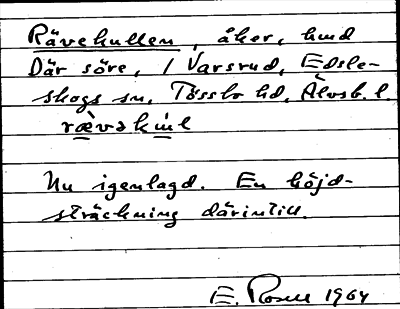 Rävekullen, åker, hmd
Där söre, 1 Varsrud, Edsle-
skogs sn, Tössbo hd, Älvsb. l.
Nu igenlagd. En höjd-
sträckning därintill.
E. Rosell 1964